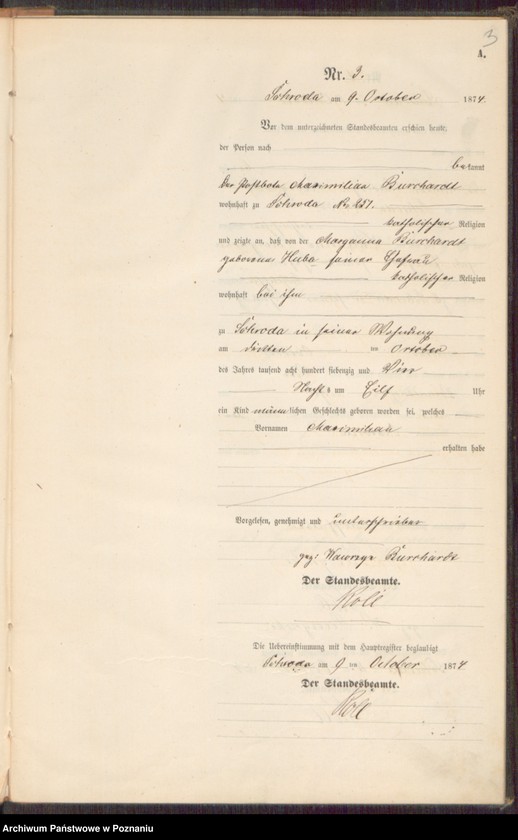 3
A.
Nr. 3.
Schroda am 9. October 1874.
Vor dem unterzeichneten Standesbeamten erschien heute,
der Person nach
bekannt
der Postbote Maximilian Burchardt
wohnhaft zu Schroda No 251.
katholischer Religion
und zeigte an, daß von der Maryanna Burchardt
geborene Huba seiner Ehefrau
katholischer Religion
wohnhaft bei ihm
zu Schroda in seiner Wohnung
am dritten im October
des Jahres tausend acht hundert siebenzig und Vier
Nachts um Eilf Uhr
ein Kind männlichen Geschlechts geboren worden sei, welches
Vornamen Maximilian
erhalten habe
Vorgelesen, genehmigt und unterschrieben
gez. Burchardt
Der Standesbeamte.
Roll
Die Uebereinstimmung mit dem Hauptregister beglaubigt
Schroda am 9 ten October 1874.
Der Standesbeamte.
Roll
Archiwum Państwowe w Poznaniu